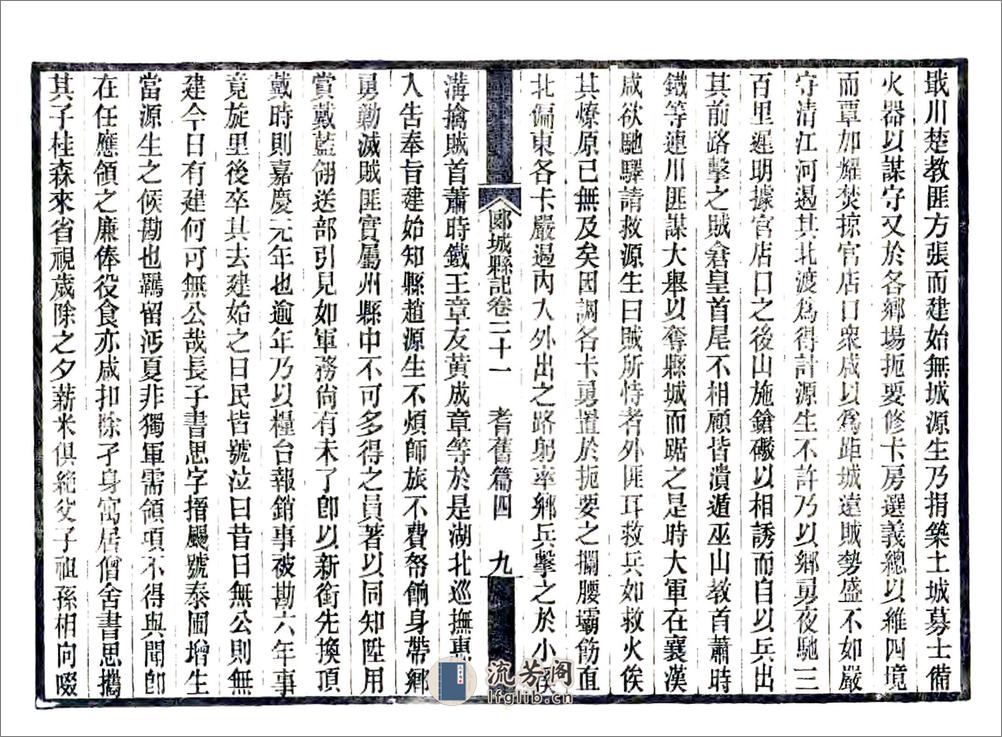 戢川楚教匪方張而建始無城源生乃捐築土城募士備
火器以謀守又於各鄉場扼要修卡房選義總以維四境
而覃加耀焚掠官店口眾咸以為距城遠賊勢盛不如嚴
守清江河遏其北渡為得計源生不許乃以鄉勇夜馳三
百里遲明據官店口之後山施鎗礮以相誘而自以兵出
其前路擊之賊倉皇首尾不相顧皆潰遁巫山教首蕭時
鐵等連川匪謀大舉以奪縣城而踞之是時大軍在襄漢
咸欲馳驛請救源生曰賊所恃者外匪耳救兵如救火俟
其燎原已無及矣因調各卡勇置於扼要之攔腰壩飭直
北偏東各卡嚴遏內入外出之路躬率鄉兵擊之於小
郾城縣記卷二十一 耆舊篇四 九
溝擒賊首蕭時鐵王章友黃成章等於是湖北巡撫惠
入告奉旨建始知縣趙源生不煩師旅不費帑餉身帶鄉
勇勦滅賊匪實屬州縣中不可多得之員著以同知陞用
賞戴藍翎送部引見如軍務尚有未了卽以新銜先換頂
戴時則嘉慶元年也逾年乃以糧台報銷事被勘六年事
竟旋里後卒其去建始之日民皆號泣曰昔日無公則無
建今日有建何可無公哉長子書思字搢颺號泰圃增生
當源生之候勘也羈留沔夏非獨軍需領項不得與聞卽
在任應領之廉俸役食亦咸扣除孑身寓居僧舍書思攜
其子桂森來省視歲除之夕薪米俱絕父子祖孫相向啜
流芳阁
lfglib.cn